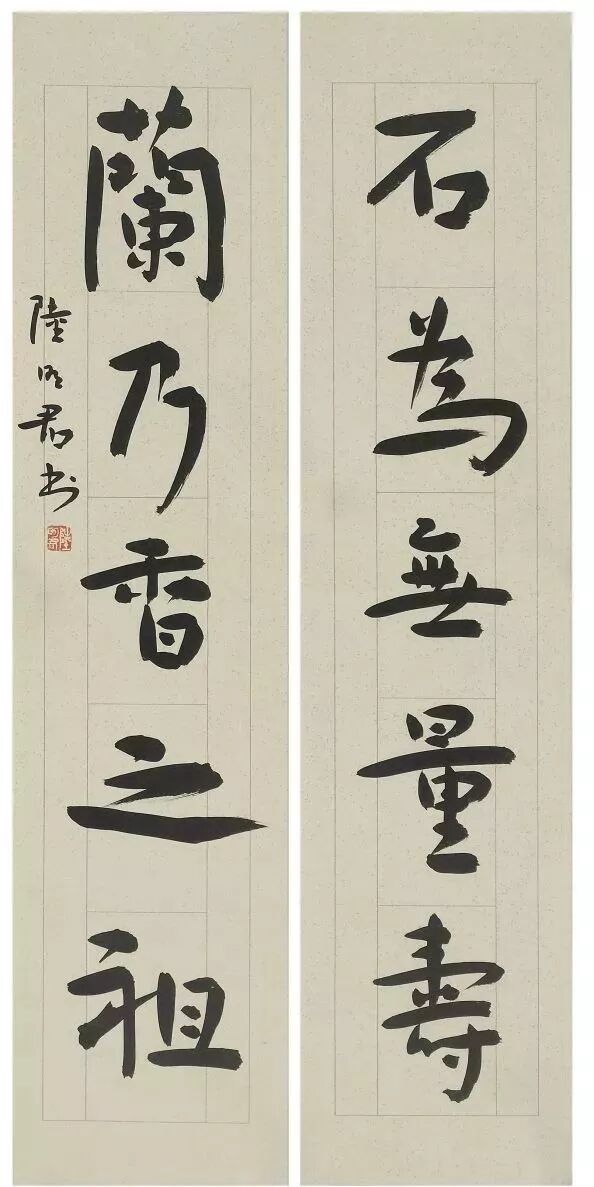 石為無量壽
蘭乃香之祖
陸明君书